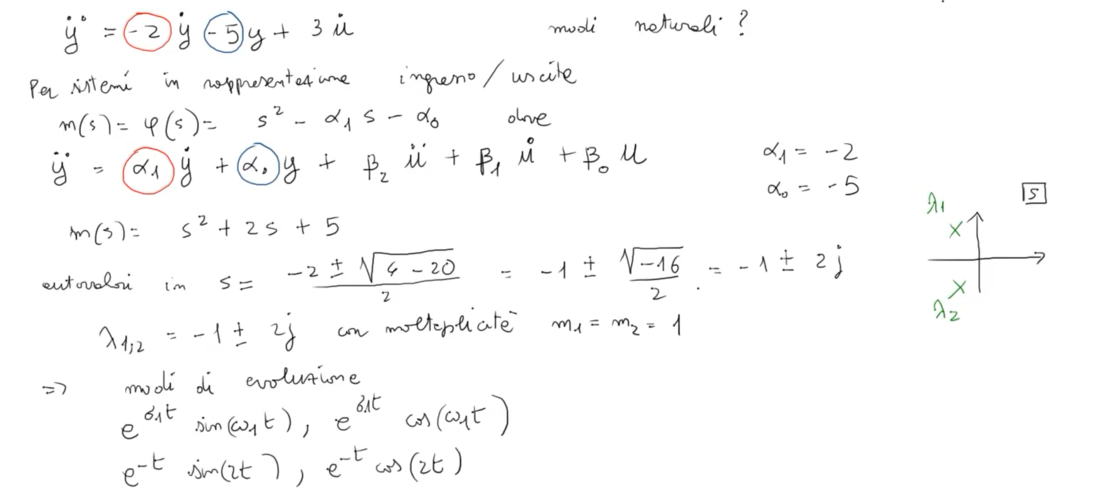 ÿ = -2 ẏ -5y + 3 u̇ modi naturali ?
Per sistemi in rappresentazione ingresso/uscita
m(s) = φ(s) = s² - α₁ s - α₀ dove
ÿ = α₁ ẏ + α₀ y + β₂ ü + β₁ u̇ + β₀ u
α₁ = -2
α₀ = -5
m(s) = s² + 2s + 5
autovalori in s = (-2 ± √(4 - 20))/2 = -1 ± √(-16)/2 = -1 ± 2j
λ₁,₂ = -1 ± 2j con molteplicità m₁ = m₂ = 1
λ₁
S
λ₂
=> modi di evoluzione
e^(σ₁t) sin(ω₁t), e^(σ₁t) cos(ω₁t)
e^(-t) sin(2t), e^(-t) cos(2t)